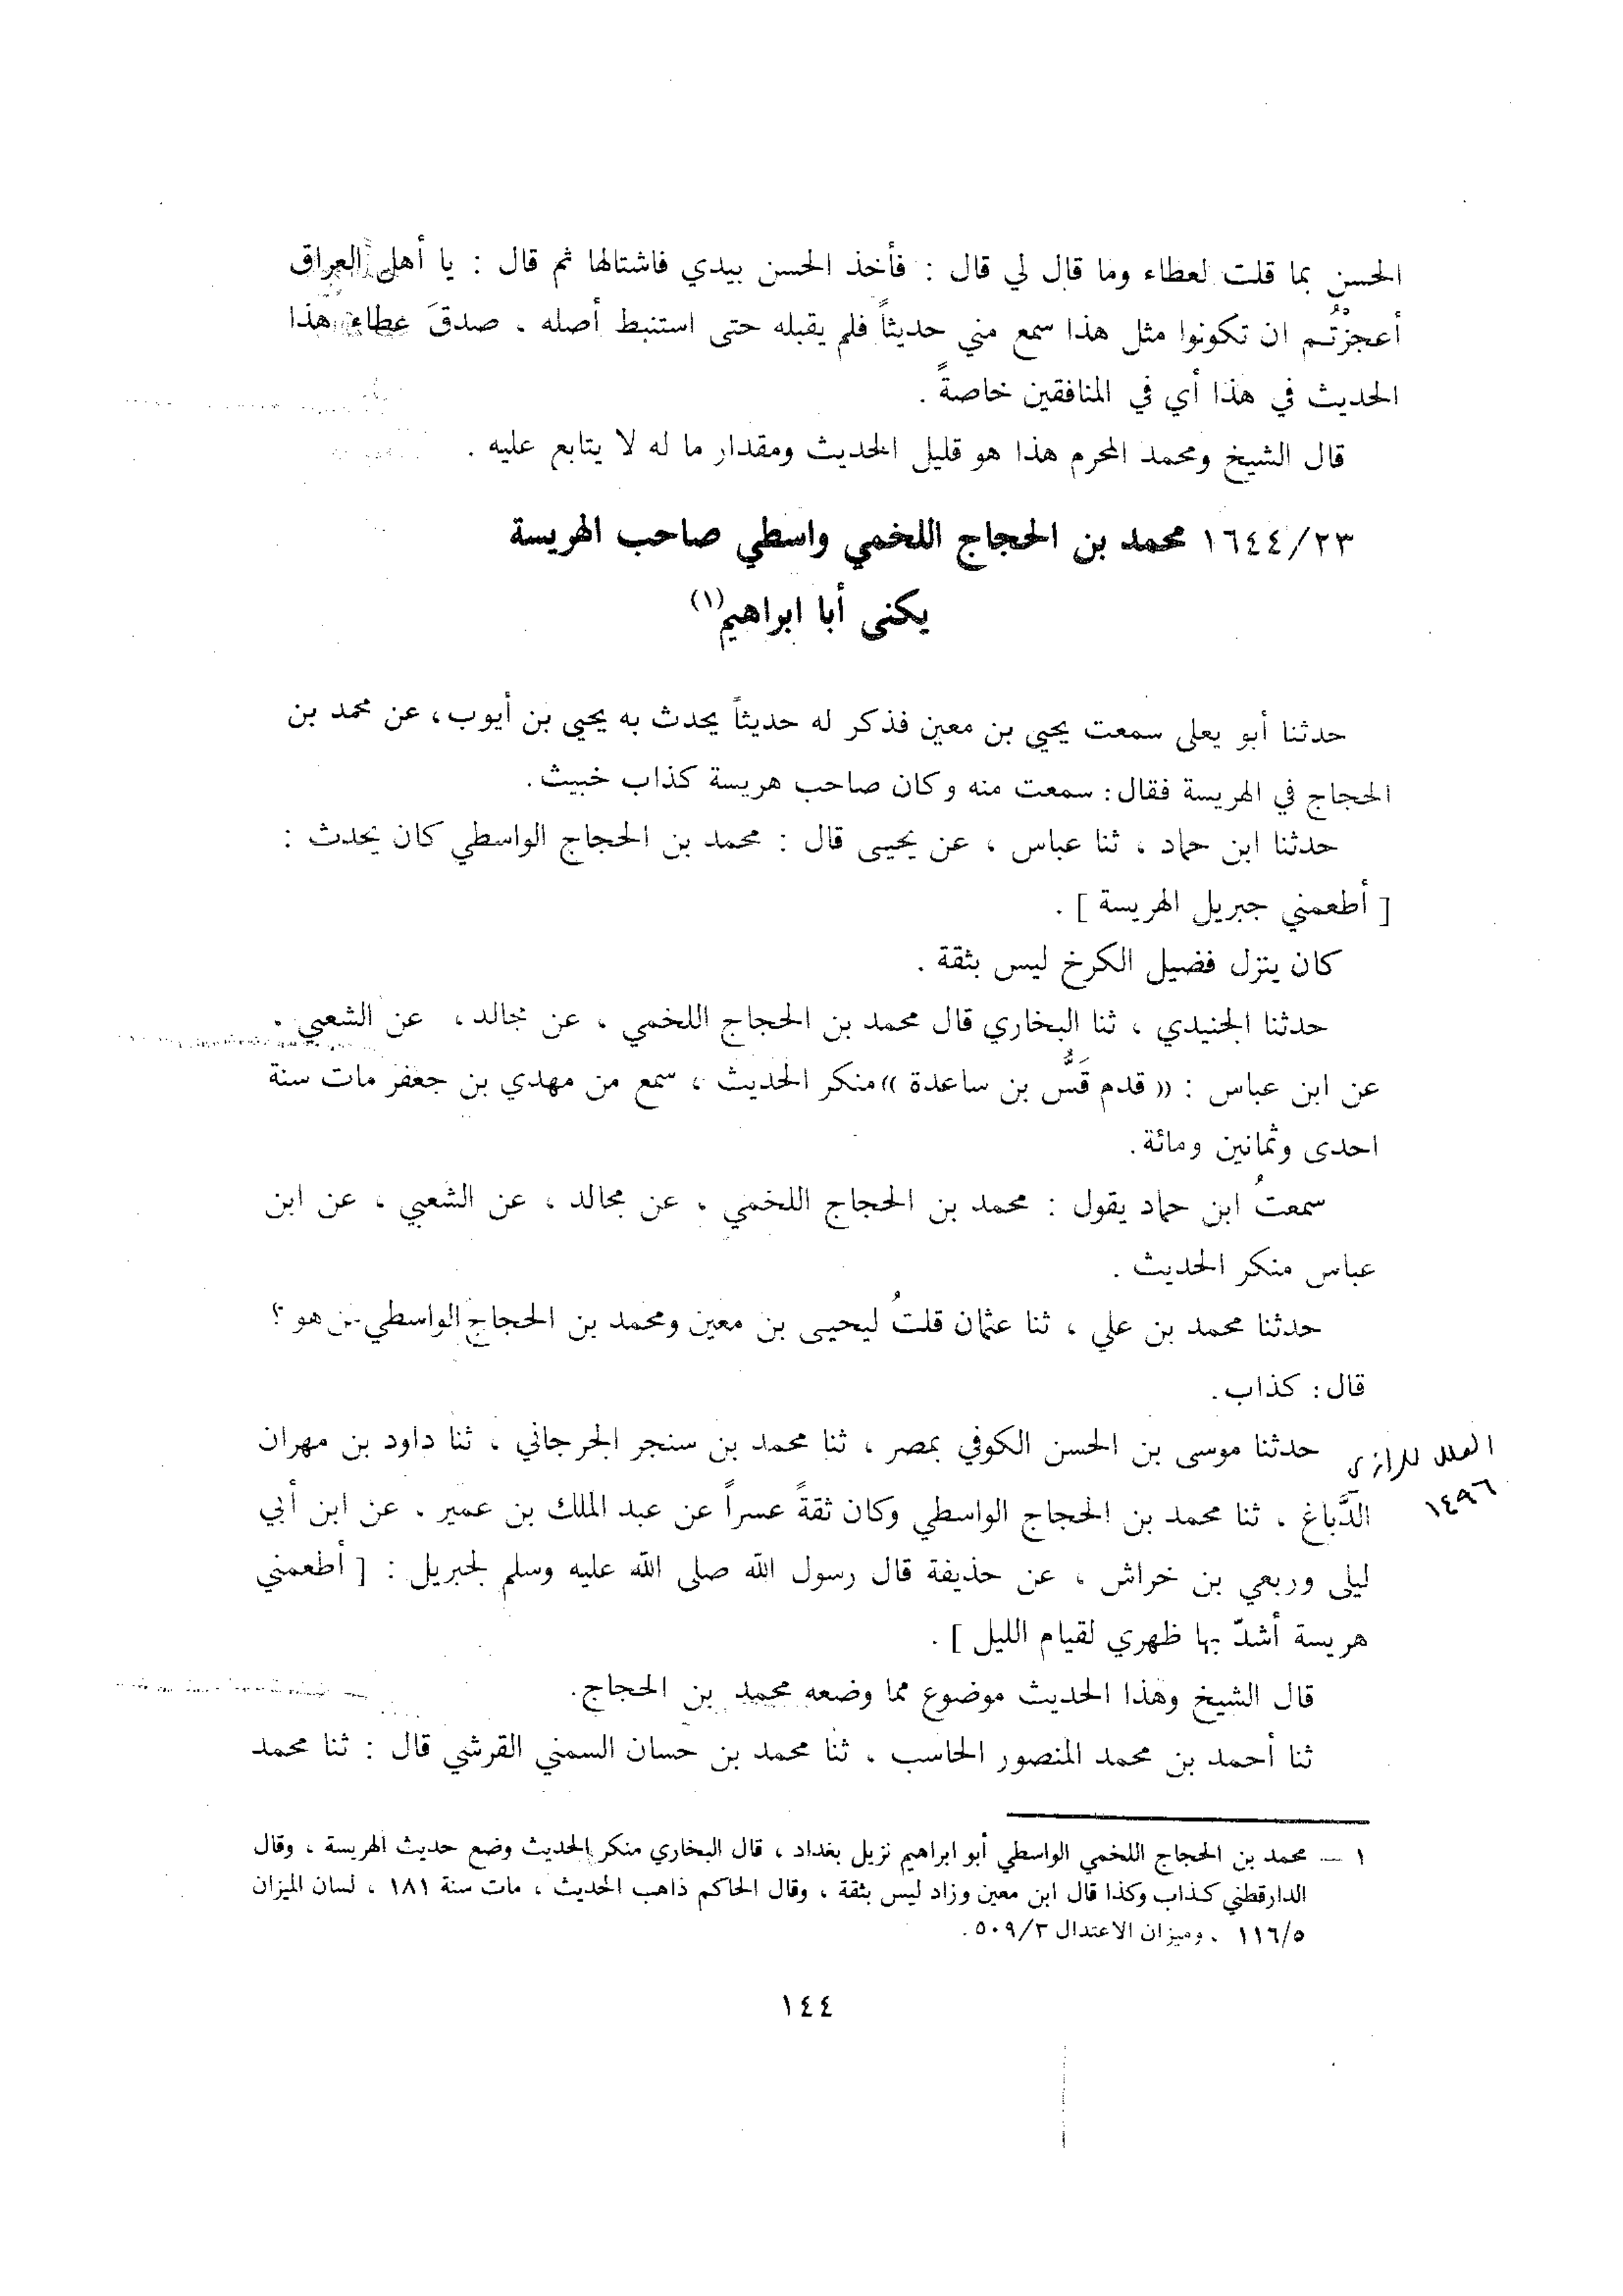 الحسن بما قلت لعطاء وما قال لي قال : فأخذ الحسن بيدي فاشتالها ثم قال : يا أهل العراق
أعجزتُم ان تكونوا مثل هذا سمع مني حديثاً فلم يقبله حتى استنبط أصله . صدقَ عطاء هذا
الحديث في هذا أي في المنافقين خاصةً .
قال الشيخ ومحمد المحرم هذا هو قليل الحديث ومقدار ما له لا يتابع عليه .
١٦٤٤/٢٣ محمد بن الحجاج اللخمي واسطي صاحب الهريسة
يكنى أبا ابراهيم(١)
حدثنا أبو يعلى سمعت يحيي بن معين فذكر له حديثاً يحدث به يحيي بن أيوب، عن محمد بن
الحجاج في الهريسة فقال: سمعت منه وكان صاحب هريسة كذاب خبيث.
حدثنا ابن حماد ، ثنا عباس ، عن يحيى قال : محمد بن الحجاج الواسطي كان يحدث :
[ أطعمني جبريل الهريسة ] .
كان ينزل فضيل الكرخ ليس بثقة .
حدثنا الجنيدي ، ثنا البخاري قال محمد بن الحجاج اللخمي ، عن مجالد ، عن الشعبي .
عن ابن عباس : (( قدم قَسُّ بن ساعدة )) منكر الحديث ، سمع من مهدي بن جعفر مات سنة
احدى وثمانين ومائة.
سمعتُ ابن حماد يقول : محمد بن الحجاج اللخمي ، عن مجالد ، عن الشعبي ، عن ابن
عباس منكر الحديث .
حدثنا محمد بن علي ، ثنا عثمان قلتُ ليحيى بن معين ومحمد بن الحجاج الواسطي هو ؟
قال: كذاب.
حدثنا موسى بن الحسن الكوفي بمصر ، ثنا محمد بن سنجر الجرجاني ، ثنا داود بن مهران
العلل للرازي
١٤٩٦
الدَّباغ ، ثنا محمد بن الحجاج الواسطي وكان ثقةً عسراً عن عبد الملك بن عمير . عن ابن أبي
ليلى وربعي بن خراش ، عن حذيفة قال رسول الله صلى الله عليه وسلم لجبريل : [ أطعمني
هريسة أشدّ بها ظهري لقيام الليل ] .
قال الشيخ وهذا الحديث موضوع مما وضعه محمد بن الحجاج.
ثنا أحمد بن محمد المنصور الحاسب ، ثنا محمد بن حسان السمني القرشي قال : ثنا محمد
١ — محمد بن الحجاج اللخمي الواسطي أبو ابراهيم نزيل بغداد ، قال البخاري منكر الحديث وضع حديث الهريسة ، وقال
الدارقطني كذاب وكذا قال ابن معين وزاد ليس بثقة ، وقال الحاكم ذاهب الحديث ، مات سنة ١٨١ ، لسان الميزان
١١٦/٥ ، وميزان الاعتدال ٥٠٩/٣ .
١٤٤